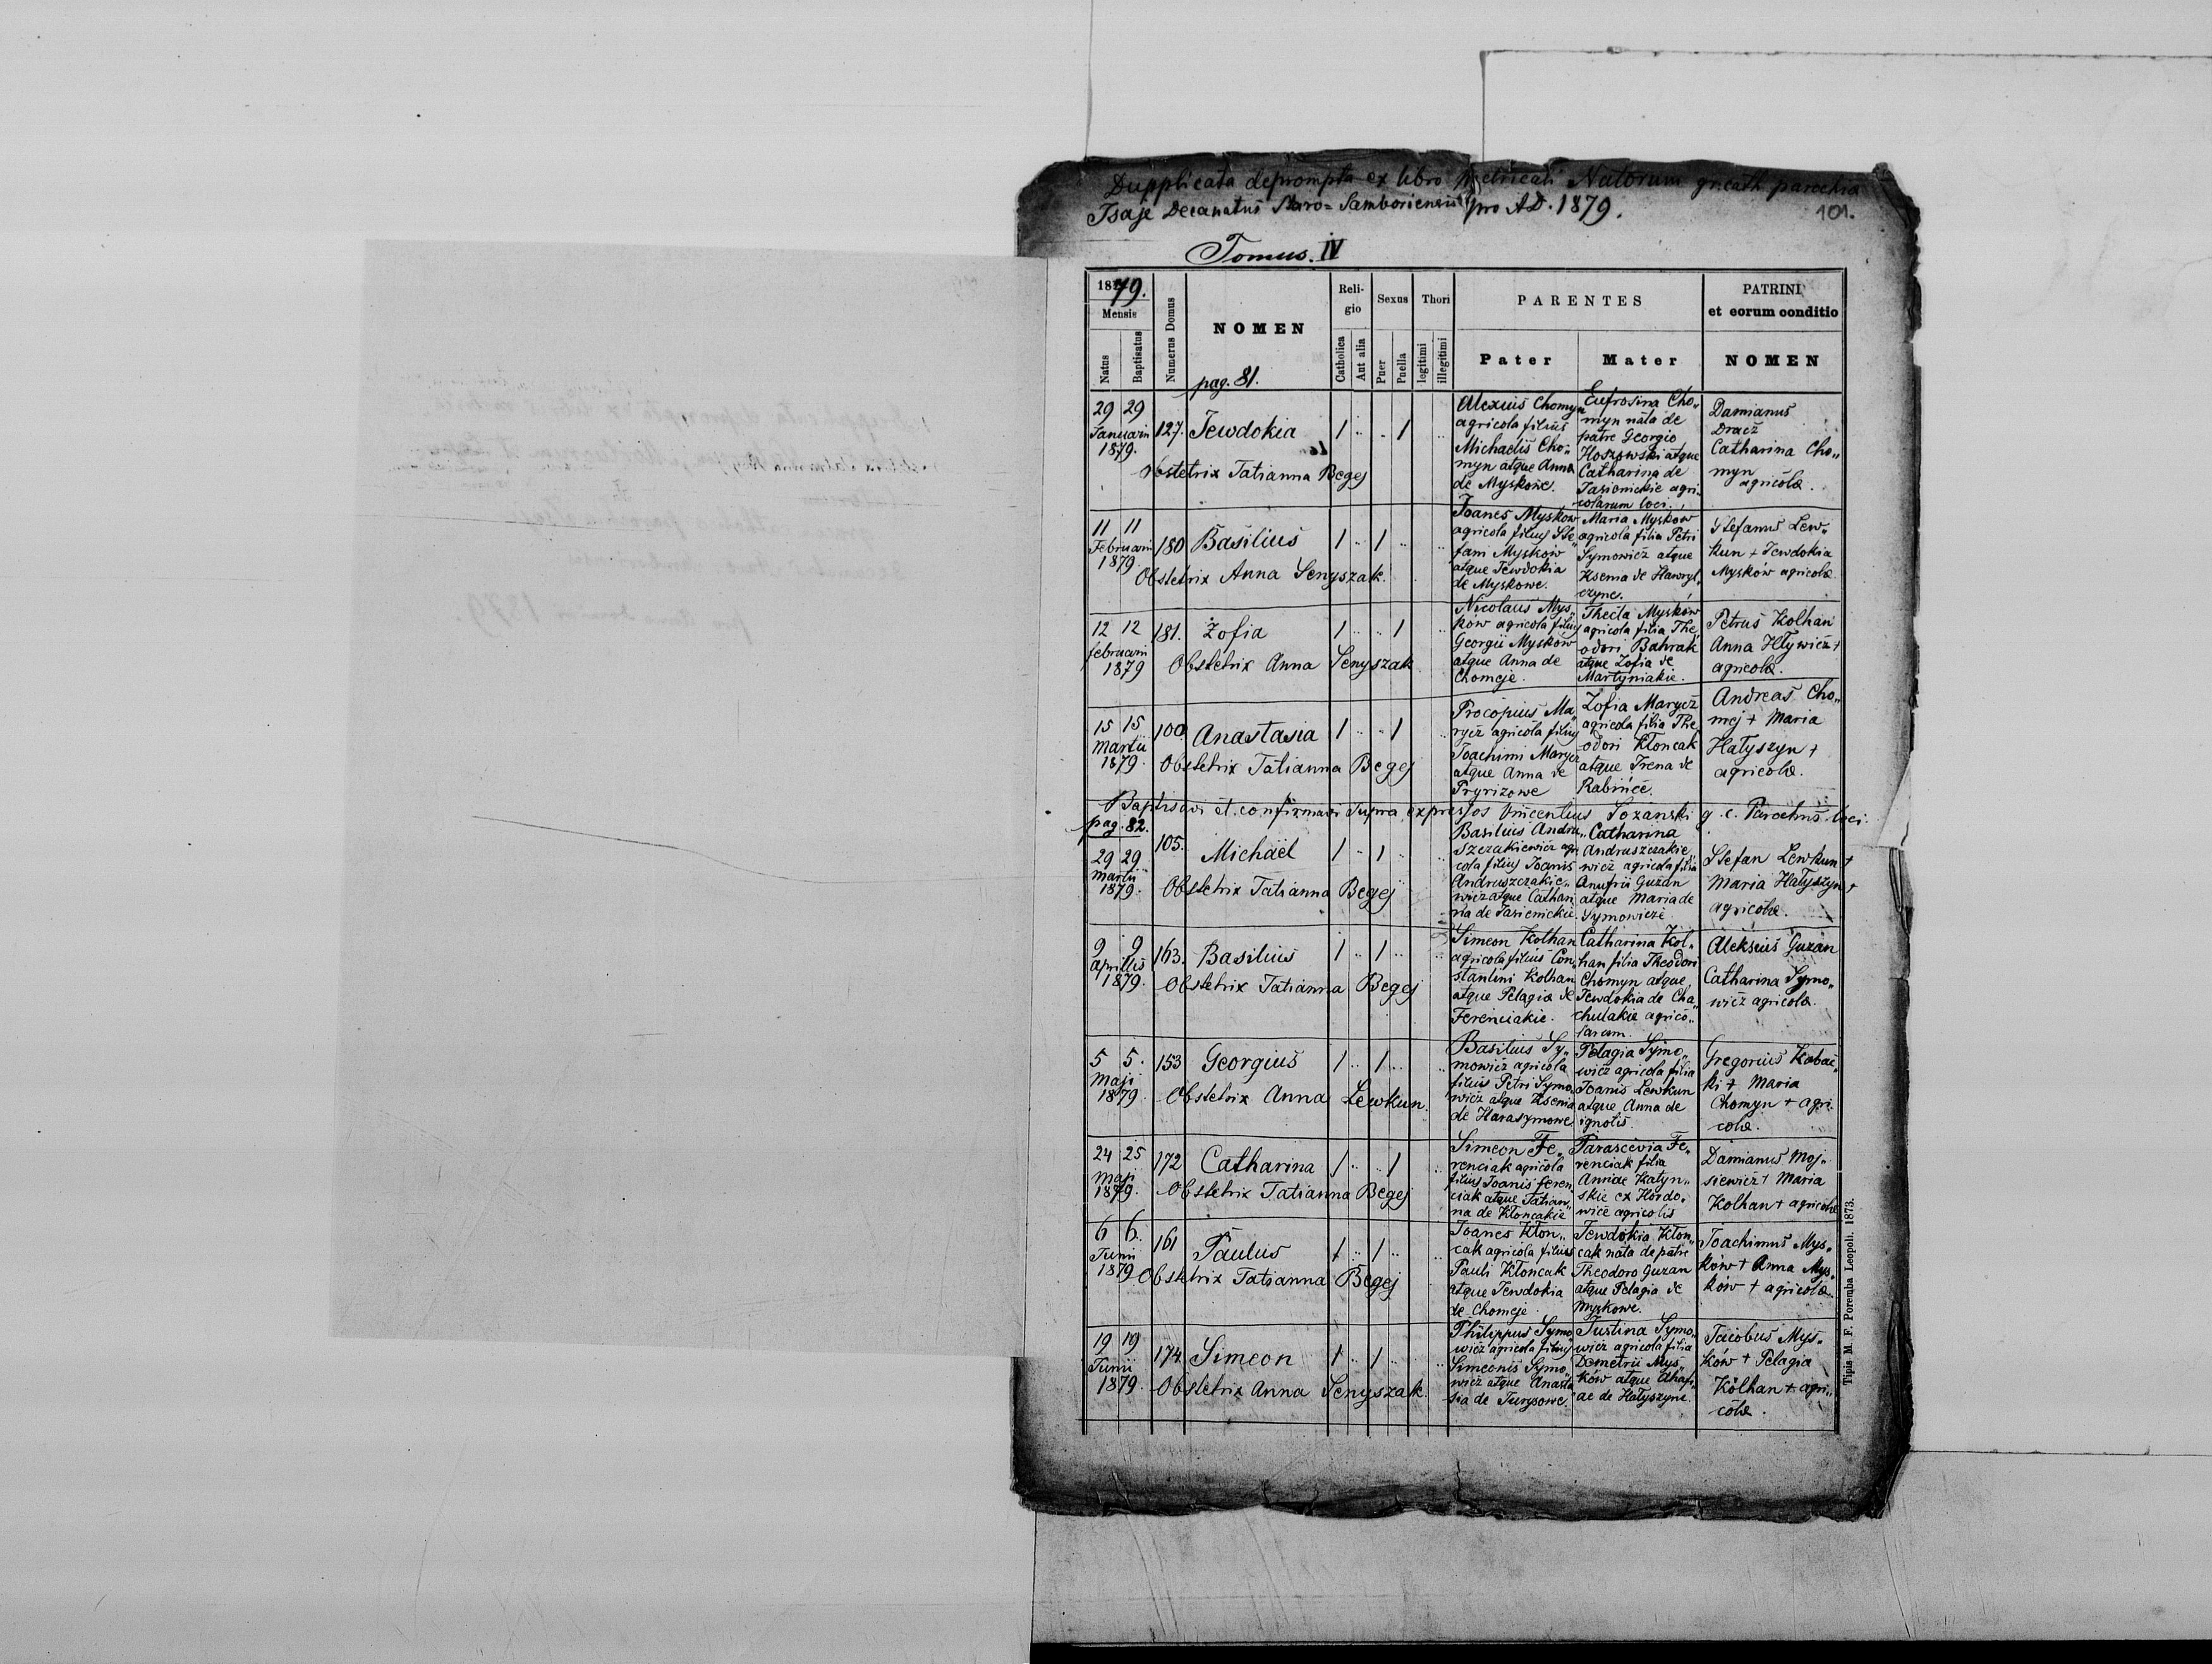 Dupplicata deprompta ex libro metricali Natorum gr. cath. parochia
Isaje Decanatus Staro=Samboriensis pro A.D. 1879.
101.
Tomus. IV
1879.
Mensis
Natus
Baptisatus
Numerus Domus
NOMEN
pag. 81.
Reli-
gio
Catholica
Aut alia
Sexus
Puer
Puella
Thori
legitimi
illegitimi
PARENTES
Pater
Mater
PATRINI
et eorum conditio
NOMEN
29 29
Januarii
1879.
127.
Jewdokia
1 " " 1 "
Obstetrix Tatianna Begej
Alexius Chomyn
agricola filius
Michaelis Cho„
myn atque Anna
de Myskowe.
Eufrosina Cho„
myn nata de
patre Georgio
Hoszowski atque
Catharina de
Jasienickie agri„
colarum loci.
Damianus
Dracz
Catharina Cho„
myn
agricolæ.
11 11
Februarii
1879
180
Basilius
1 " 1 " "
Obstetrix Anna Senyszak.
Joanes Myskow
agricola filius Ste„
fani Myskow
atque Jewdokia
de Myskowe.
Maria Myskow
agricola filia Petri
Symowicz atque
Ksenia de Hawryl„
czyne.
Stefanus Lew„
kun + Jewdokia
Mysków agricolæ.
12 12
februarii
1879
181.
Zofia
1 " " 1 "
Obstetrix Anna Senyszak
Nicolaus Mys„
ków agricola filius
Georgii Myskow
atque Anna de
Chomeje.
Thecla Mysków
agricola filia The„
odori Bahrak
atque Zofia de
Martyniakie.
Petrus Kolhan
Anna Hlywicz +
agricolæ.
15 15
Martii
1879.
100
Anastasia
1 " " 1 "
Obstetrix Tatianna Begej
Procopius Ma„
rycz agricola filius
Joachimi Marycz
atque Anna de
Pryrizowe
Zofia Marycz
agricola filia The„
odori Kłoncak
atque Irena de
Rabince.
Andreas Cho„
mej + Maria
Hałyszyn +
agricolæ.
Baptisavi et confirmavi supra expressos Vincentius Sozanski g. c. Parochus loci.
pag. 82.
29 29
martii
1879.
105.
Michaël
1 " 1 " "
Obstetrix Tatianna Begej
Basilius Andru„
szczakiewicz agri„
cola filius Joanis
Andruszczakie„
wicz atque Cathari„
na de Jasienickie.
Catharina
Andruszczakie„
wicz agricola filia
Anufrii Guzan
atque Maria de
Symowicze
Stefan Lewkun +
Maria Hałyszyn +
agricolæ.
9 9
aprilis
1879.
163.
Basilius
1 " 1 " "
Obstetrix Tatianna Begej
Simeon Kolhan
agricola filius Con„
stantini Kolhan
atque Pelagia de
Ferenciakie.
Catharina Kol„
han filia Theodori
Chomyn atque
Jewdokia de Cha„
chulakie agrico„
larum.
Aleksius Guzan
Catharina Symo„
wicz agricolæ.
5 5.
Maji
1879.
153
Georgius
1 " 1 " "
Obstetrix Anna Lewkun.
Basilius Sy„
mowicz agricola
filius Petri Symo„
wicz atque Ksenia
de Harasymowe
Pelagia Symo„
wicz agricola filia
Joanis Lewkun
atque Anna de
ignotis.
Gregorius Kobac„
ki + Maria
Chomyn + agri„
colæ.
24 25
Maji
1879.
172
Catharina
1 " " 1 "
Obstetrix Tatianna Begej
Simeon Fe„
renciak agricola
filius Joanis feren„
ciak atque Tatian„
na de Kłoncakie
Parascevia Fe„
renciak filia
Annae Katyn„
skie ex Hordo„
wice agricolis
Damianus Moj„
siewicz + Maria
Kolhan + agricolæ
6 6.
Junii
1879
161
Paulus
1 " 1 " "
Obstetrix Tatianna Begej
Joanes Kłon„
cak agricola filius
Pauli Kłoncak
atque Jewdokia
de Chomeje.
Jewdokia Kłon„
cak nata de patre
Theodoro Guzan
atque Pelagia de
Myskowe.
Joachimus Mys„
ków + Anna Mys„
ków + agricolæ.
19 19
Junii
1879.
174
Simeon
1 " 1 " "
Obstetrix Anna Senyszak.
Philippus Symo„
wicz agricola filius
Simeonis Symo„
wicz atque Anasta„
sia de Jurysowe.
Justina Symo„
wicz agricola filia
Demetrii Mys„
ków atque Ahafi„
ae de Hałyszyne.
Jacobus Mys„
ków + Pelagia
Kolhan + agri„
colæ.
Tipis M. F. Poremba Leopoli. 1873.